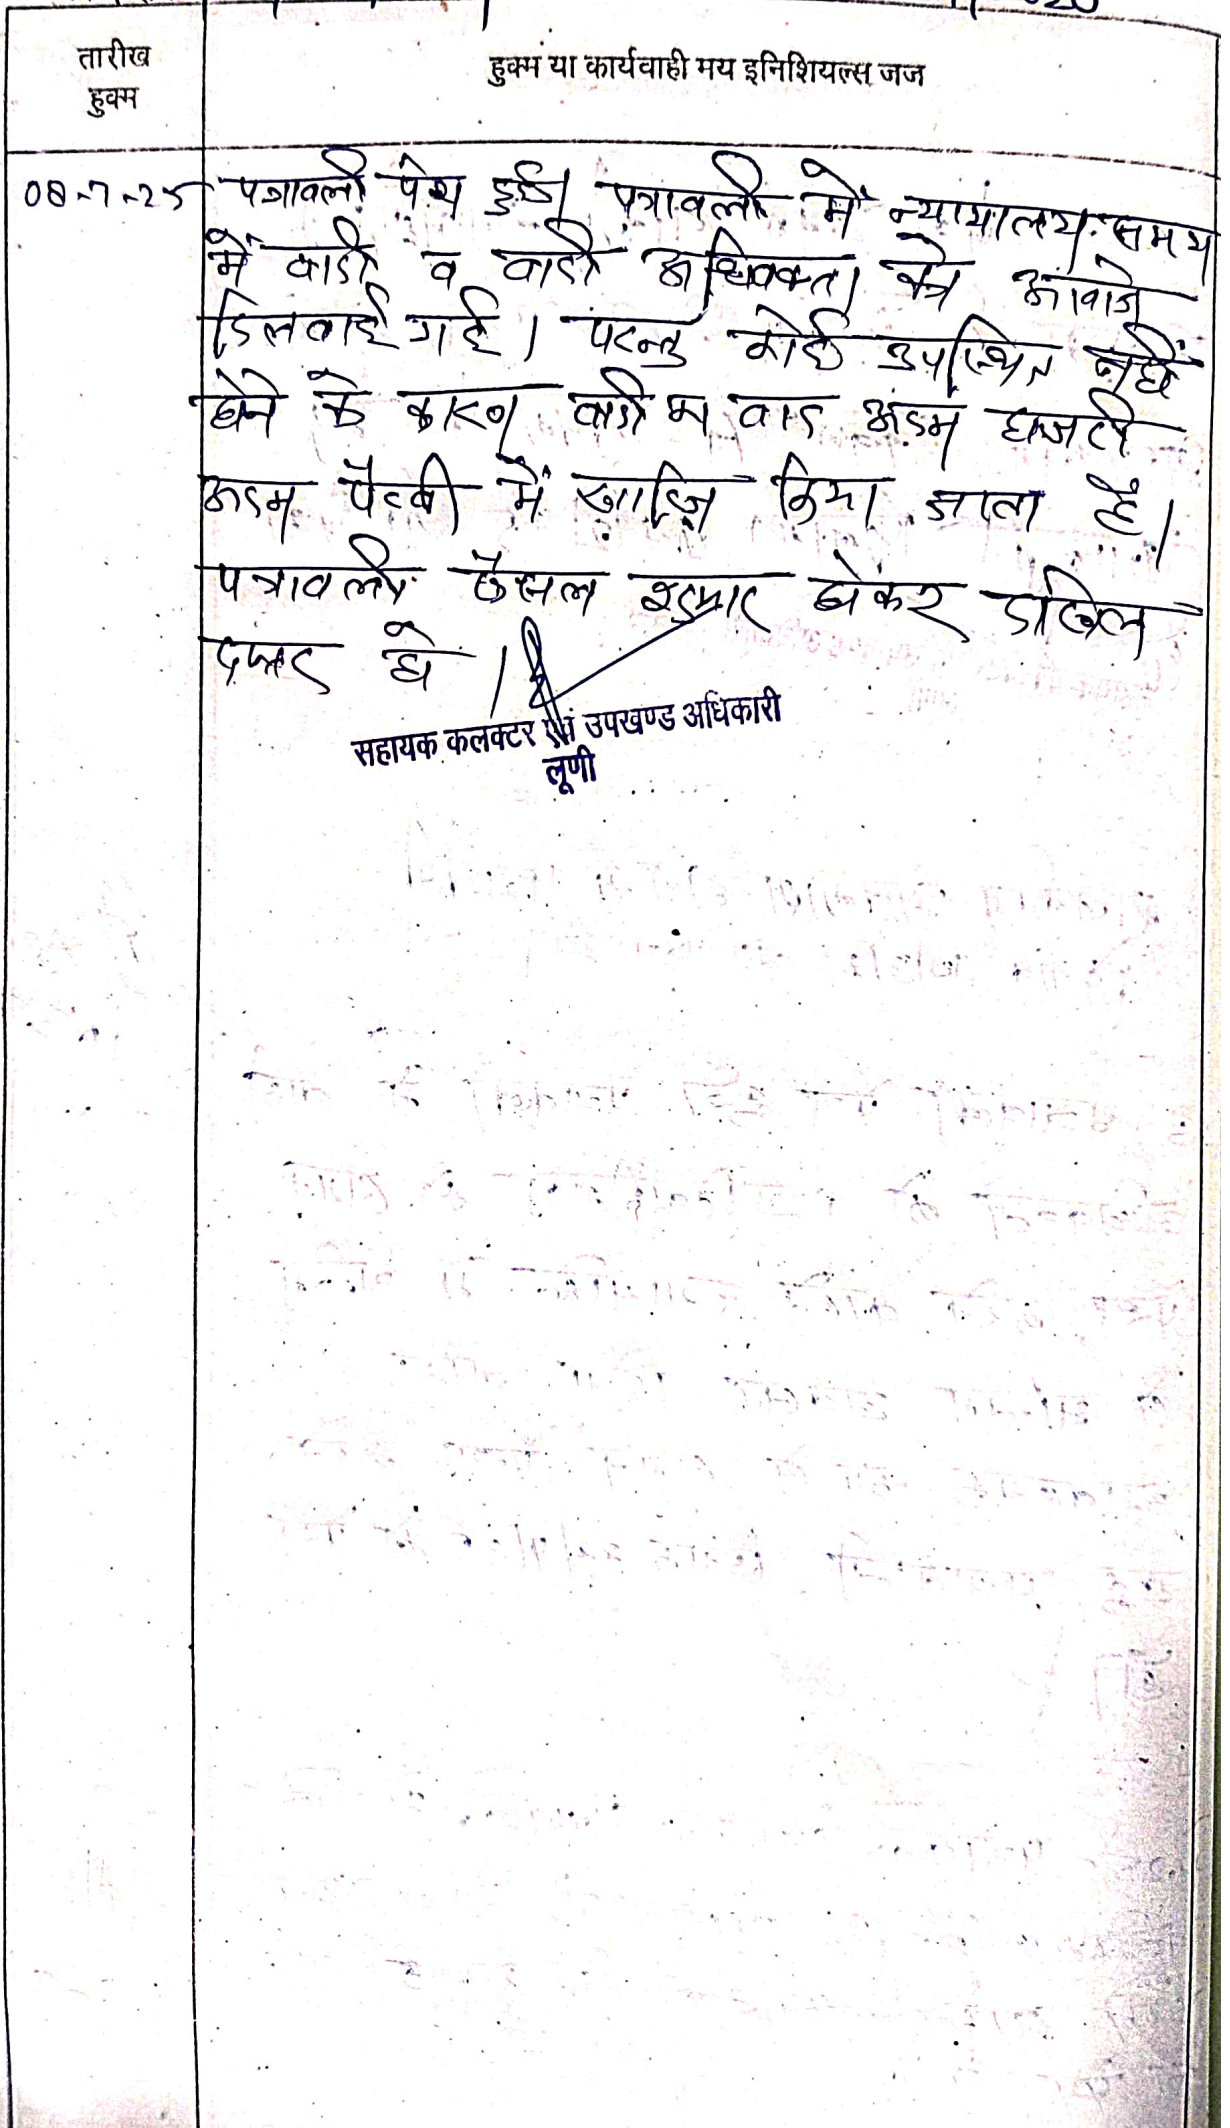 तारीख
हुक्म
हुक्म या कार्यवाही मय इनिशियल्स जज
08-7-25 पत्रावली पेश हुई। पत्रावली में न्यायालय समय
में वादी व वादी अधिवक्ता को आवाजे
दिलवाई गई। परन्तु कोई उपस्थित नहीं
होने के कारण वादी का वाद अदम हाजरी
अदम पैरवी में खारिज किया जाता है।
पत्रावली फैसल शुमार होकर दाखिल
दफ्तर हो।
सहायक कलक्टर एवं उपखण्ड अधिकारी
लूणी